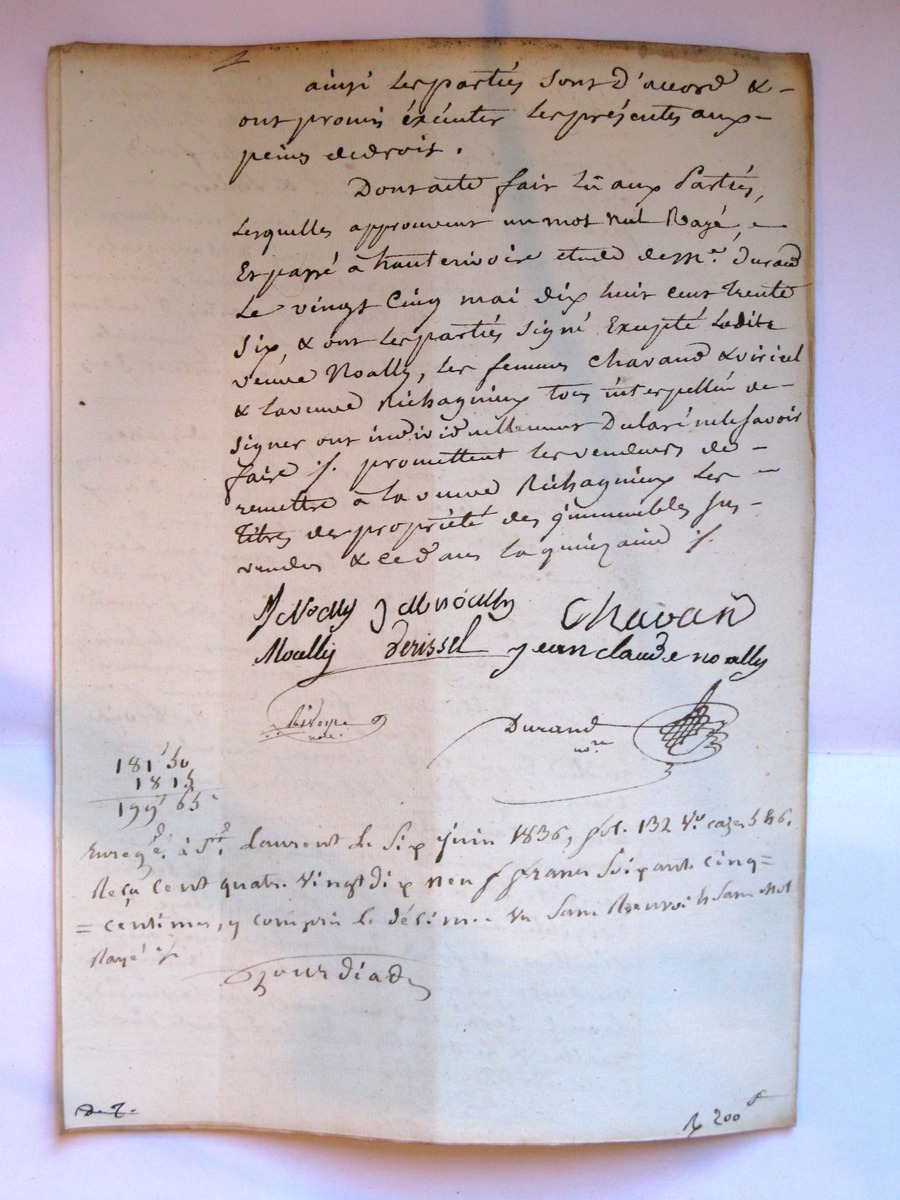 ainsi les parties sont d'accord &
ont promis éxécuter les présentes aux
peines de droit.
Dont acte fait lû aux Parties,
Lesquelles approuvent un mot nul Rayé,
Et passé à hauterivoire étude de Me. Durand
Le vingt Cinq mai dix huit cent trente
Six, & ont les parties signé Excepté Ladite
veuve Noally, les femmes Chavand & viricel
& la veuve Richagneux tous interpellés de
signer ont individuellement Déclaré ne le savoir
faire ./. promettent les vendeurs de
remettre à la veuve Richagneux Les
titres de propriété des immeubles sus
vendus & ce dans la quinzaine ./.
JNoally J M noally Chavan
Noally Perissel jean claude noally
not.
Durand
nore
181f 50
18 15
199f 65c
Enregé. à St. Laurent le Six juin 1836, fol. 132 Vo. cases 5 & 6.
Reçu Cent quatre Vingt dix neuf francs Soixante cinq
centimes, y compris le décime. Un Sans Renvoi & Sans Mot
Rayé ./.
Gourdiad
200f